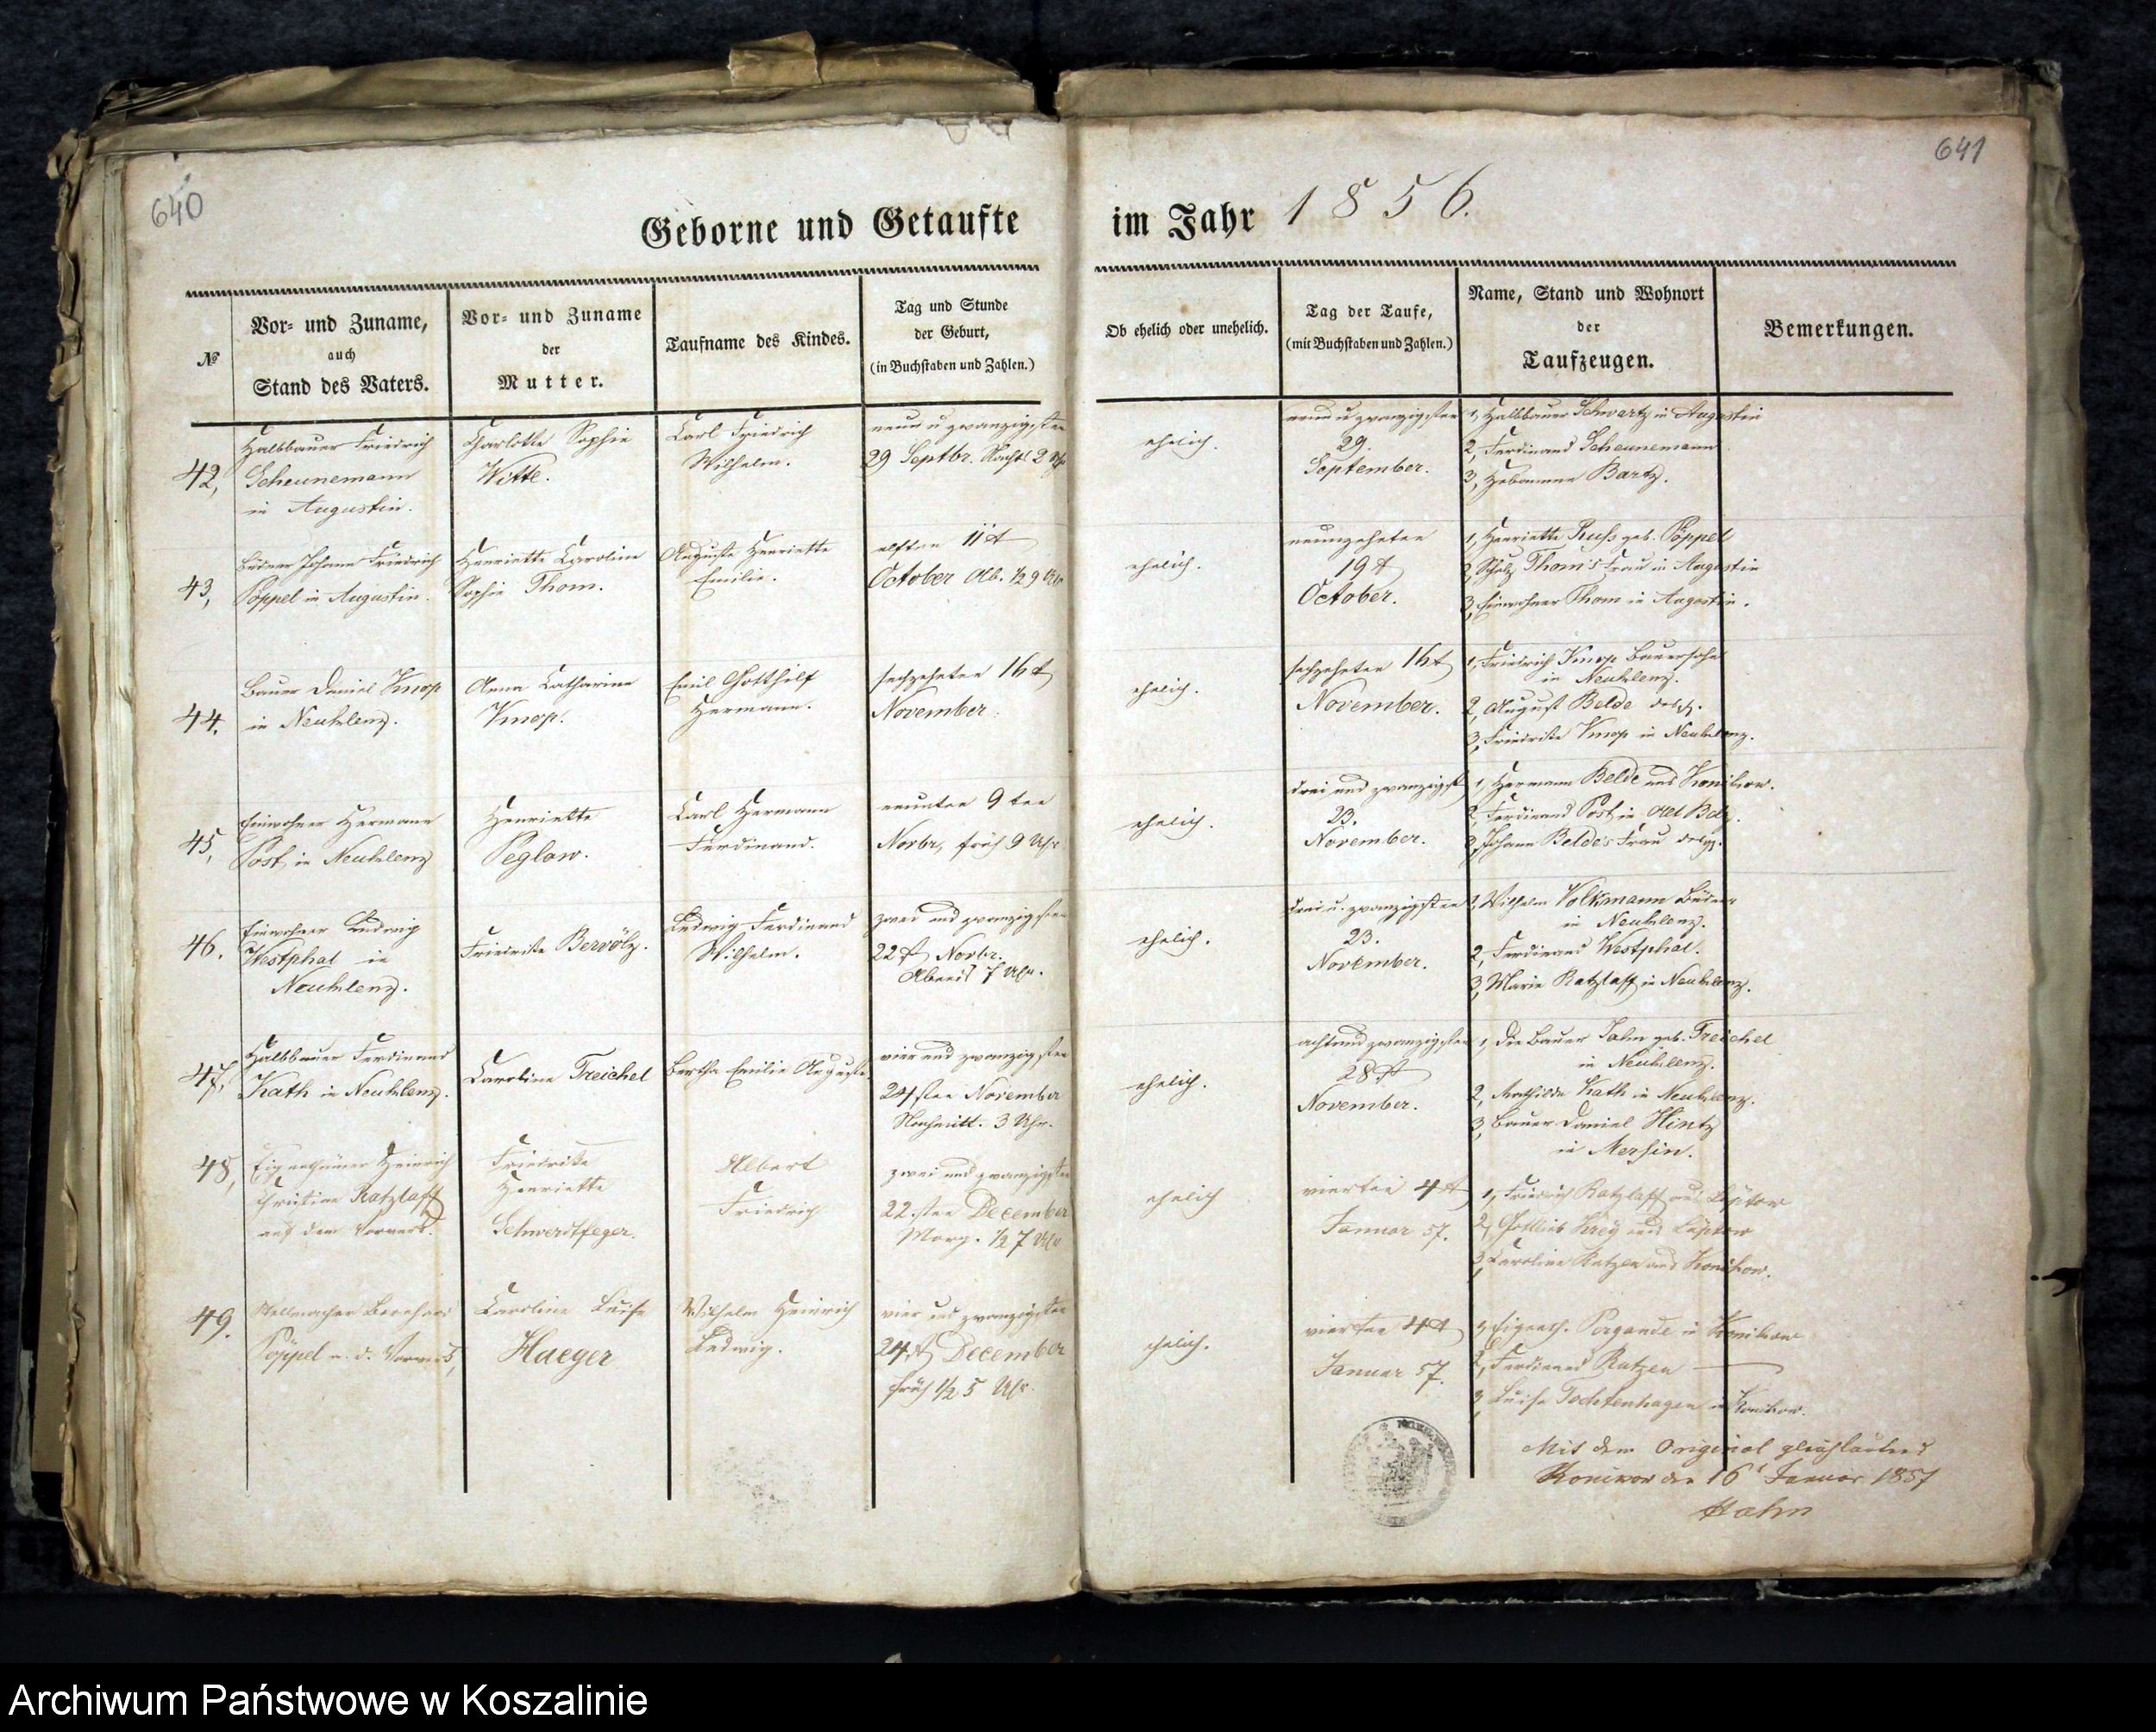 640
641
Geborne und Getaufte
im Jahr 1856.
№
Vor- und Zuname,
auch
Stand des Vaters.
Vor- und Zuname
der
Mutter.
Taufname des Kindes.
Tag und Stunde
der Geburt,
(in Buchstaben und Zahlen.)
Ob ehelich oder unehelich.
Tag der Taufe,
(mit Buchstaben und Zahlen.)
Name, Stand und Wohnort
der
Taufzeugen.
Bemerkungen.
42,
Halbbauer Friedrich
Scheunemann
in Augustin.
Charlotte Sophie
Witte.
Carl Friedrich
Wilhelm.
neun u zwanzigsten
29 Septbr. Nachts 2 Uhr
ehelich.
neun u zwanzigsten
29.
September.
1, Halbbauer Schwartz in Augustin
2, Ferdinand Scheunemann
3, Hebamme Bartz.
43,
Büdner Johann Friedrich
Pöppel in Augustin.
Henriette Caroline
Sophie Thom.
Auguste Henriette
Emilie.
elften 11t
October Ab. ½ 9 Uhr
ehelich.
neunzehnten
19t
October.
1, Henriette Russ geb. Pöppel
2, Schulz Thom's Frau in Augustin
3, Einwohner Thom in Augustin.
44.
Bauer Daniel Knop
in Neuklenz.
Anna Catharine
Knop.
Emil Gotthilf
Hermann.
sechzehnten 16t
November.
ehelich.
sechzehnten 16t
November.
1, Friedrich Knop Bauersohn
in Neuklenz.
2, August Belde
3, Friedrike Knop in Neuklenz.
45,
Einwohner Hermann
Post in Neuklenz
Henriette
Peglow.
Carl Hermann
Ferdinand.
neunten 9ten
Novbr, früh 9 Uhr
ehelich.
drei und zwanzigst
23.
November.
1, Hermann Belde aus Konikow.
2, Ferdinand Post in Alt Belz.
3, Johann Belde's Frau
46.
Einwohner Ludwig
Westphal in
Neuklenz.
Friedrike Bervölz.
Ludwig Ferdinand
Wilhelm.
zwei und zwanzigsten
22t Novbr.
Abends 7 Uhr.
ehelich.
drei u. zwanzigsten
23.
November.
1, Wilhelm Volkmann Büdner
in Neuklenz.
2, Ferdinand Westphal.
3, Marie Ratzlaff in Neuklenz.
47,
Halbbauer Ferdinand
Kath in Neuklenz.
Caroline Treichel
Bertha Emilie Auguste
vier und zwanzigsten
24sten November
Nachmitt. 3 Uhr.
ehelich.
acht und zwanzigsten
28t
November.
1, Die Bauer Jahn geb. Treichel
in Neuklenz.
2, Mathilde Kath in Neuklenz.
3, Bauer Daniel Hintz
in Mersin.
48,
Eigenthümer Heinrich
Christian Ratzlaff
auf dem Vorwerk.
Friedrike
Henriette
Schwerdtfeger.
Albert
Friedrich
zwei und zwanzigsten
22sten December
Morg. ½ 7 Uhr
ehelich
vierten 4t
Januar 57.
1, Friedrich Ratzlaff aus Lüptow
2, Gottlieb Krey aus Lüptow
3, Caroline Ratzen aus Konikow.
49.
Stellmacher Bernhard
Pöppel a. d. Vorwerk,
Caroline Luise
Haeger
Wilhelm Heinrich
Ludwig.
vier und zwanzigsten
24t December
früh ½ 5 Uhr
ehelich.
vierten 4t
Januar 57.
1, Eigenth. Pergande in Konikow
2, Ferdinand Ratzen
3, Luise Tochtenhagen in Konikow.
Mit dem Original gleichlautend
Konikow den 16 Januar 1857
Hahn
Archiwum Państwowe w Koszalinie